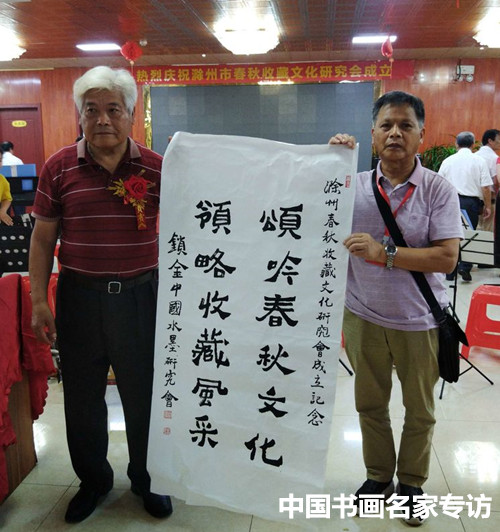 热烈庆祝滁州市春秋收藏文化研究会成立
滁州春秋收藏文化研究會成立記念
頌吟春秋文化
領略收藏風采
鎖金中國水墨研究會
中国书画名家专访